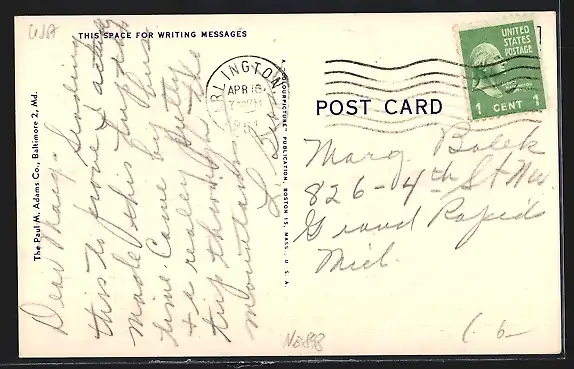 WA
THIS SPACE FOR WRITING MESSAGES
Dear Marg. Sending
this to prove I actually
made this trip
time Came by bus
& a realy pretty
trip through the
mountains
L
The Paul M. Adams Co., Baltimore 2, Md.
A "COLOURPICTURE" PUBLICATION, BOSTON 15, MASS., U. S. A.
ARLINGTON
APR 16
UNITED
STATES
POSTAGE
WASHINGTON
1 CENT 1
POST CARD
Marg. Bolek
826-4th St NW.
Grand Rapids
Mich.